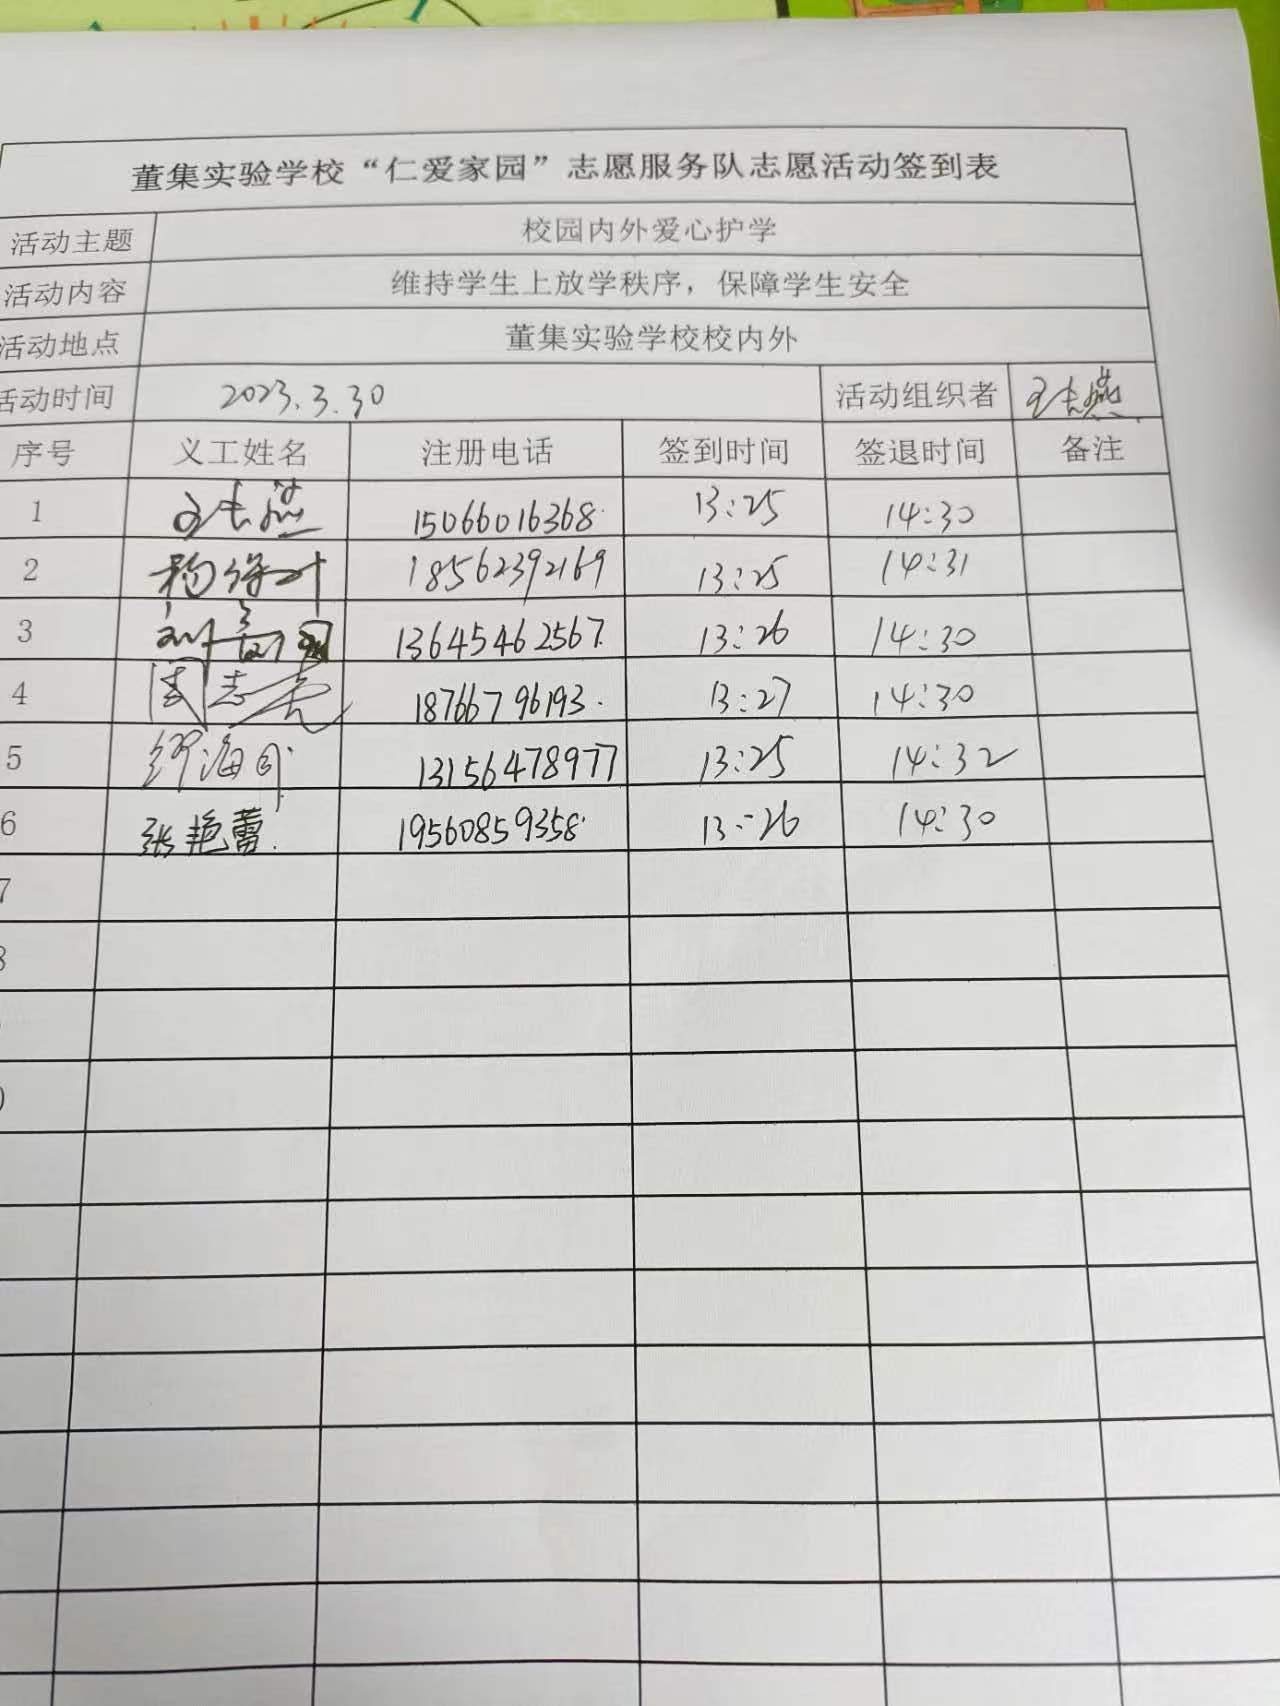 董集实验学校“仁爱家园”志愿服务队志愿活动签到表
活动主题 校园内外爱心护学
活动内容 维持学生上放学秩序，保障学生安全
活动地点 董集实验学校校内外
活动时间 2023.3.30 活动组织者
序号 义工姓名 注册电话 签到时间 签退时间 备注
1 15066016368 13:25 14:30
2 18562392169 13:25 14:31
3 13645462567 13:26 14:30
4 周志亮 18766796193 13:27 14:30
5 13156478977 13:25 14:32
6 张艳蕾 19560859358 13:26 14:30
7
8